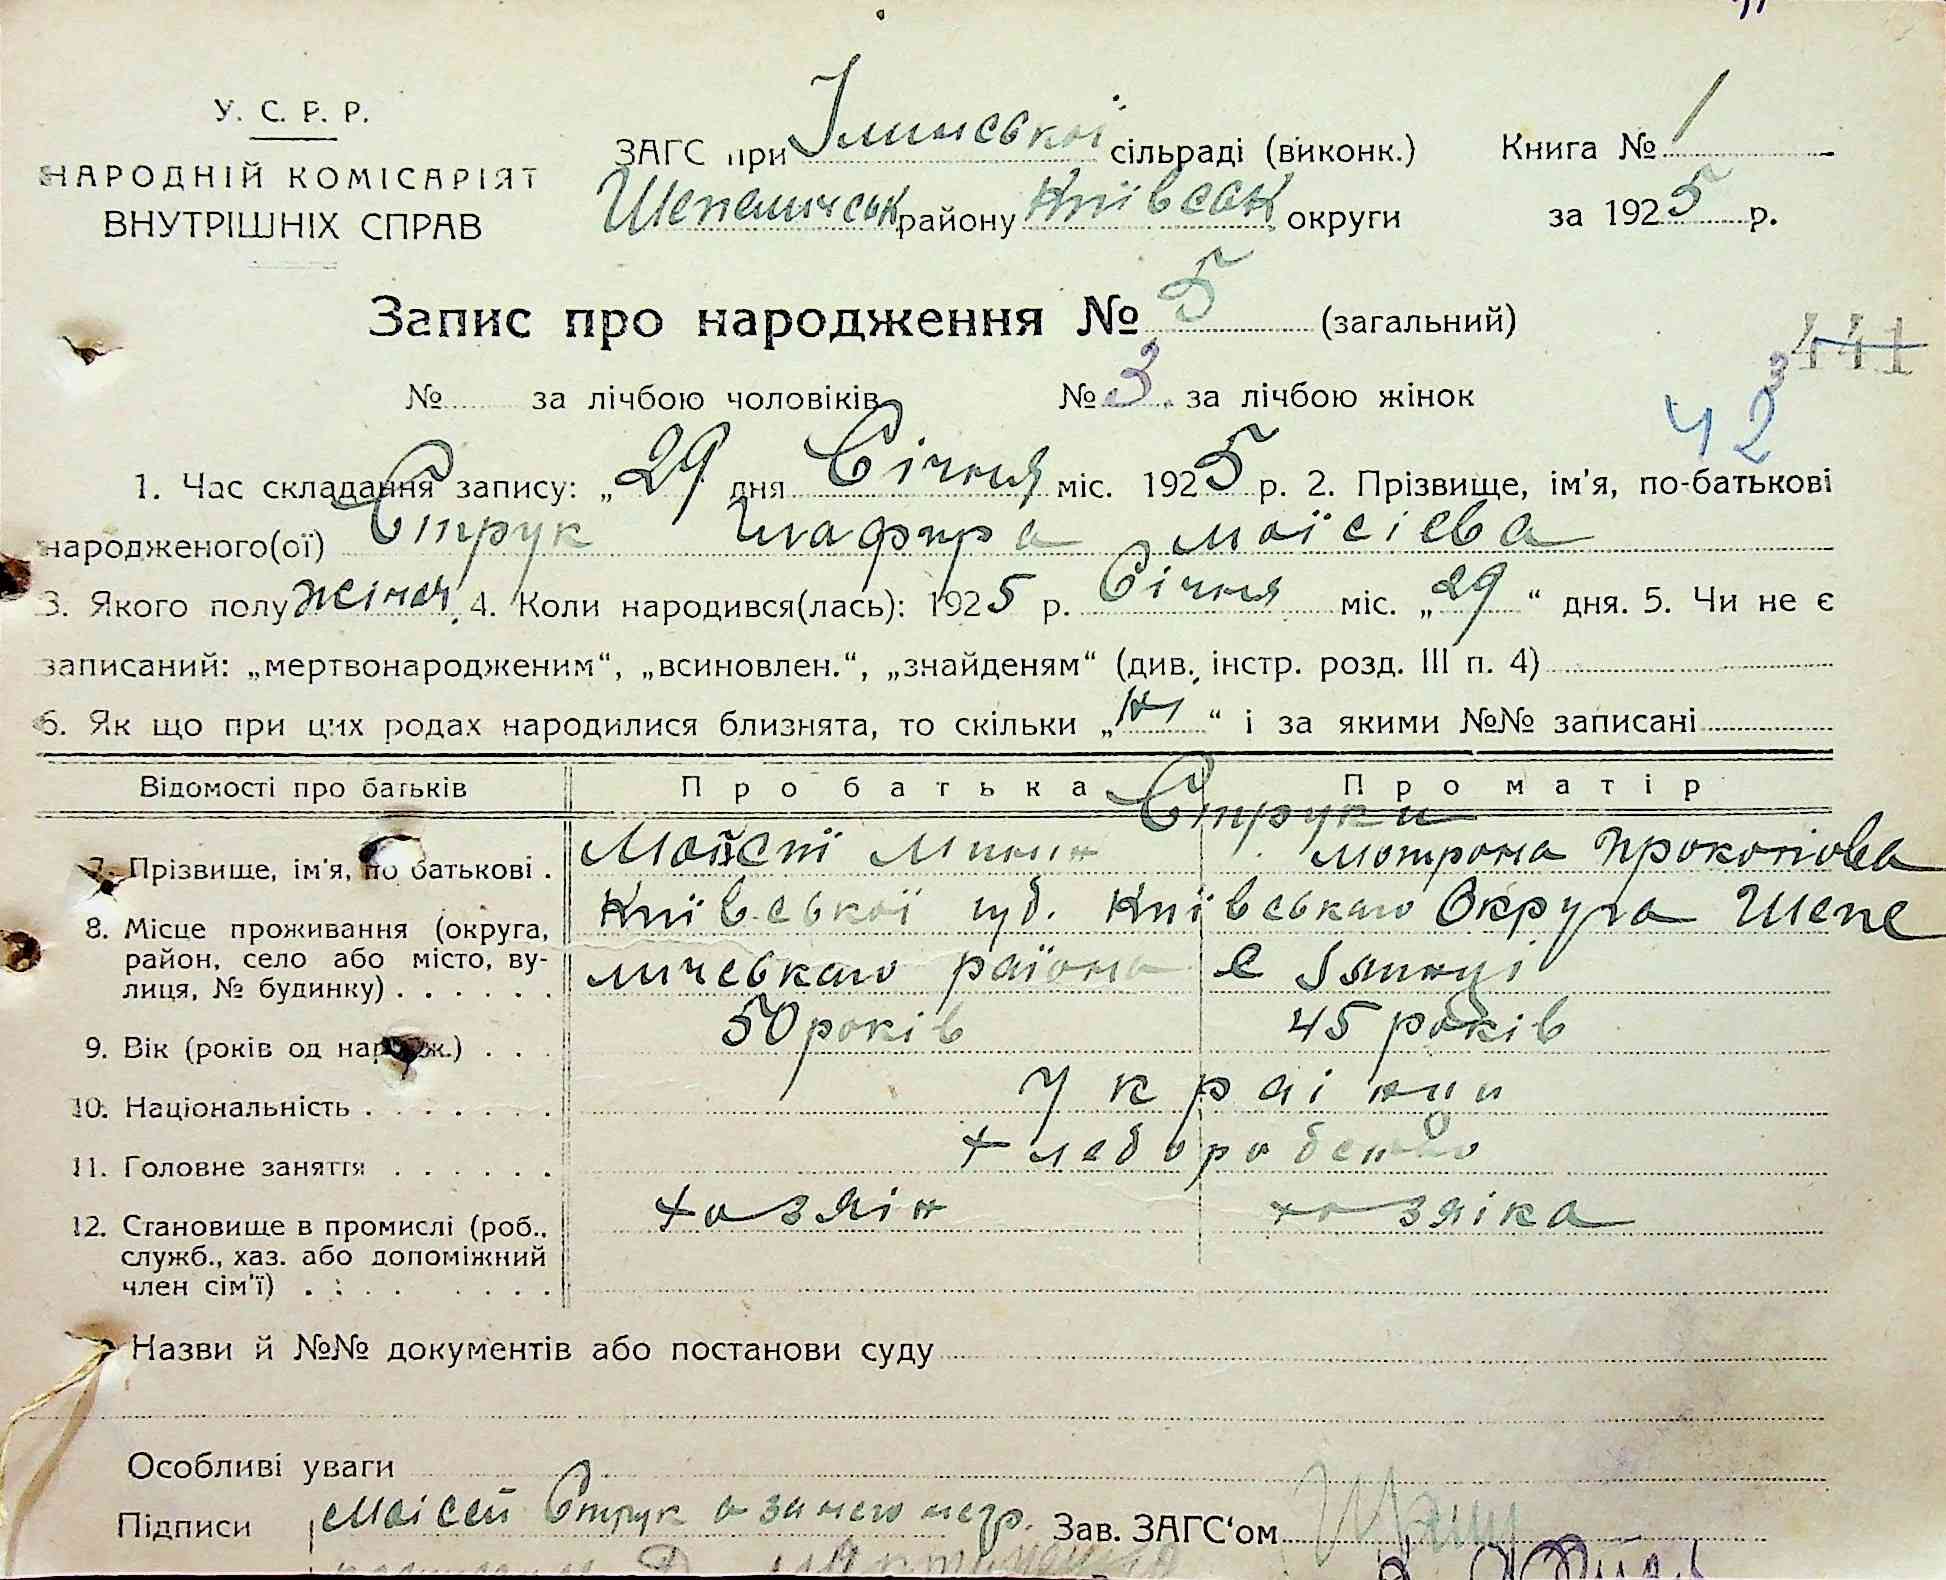 У. С. Р. Р.
НАРОДНІЙ КОМІСАРІЯТ
ВНУТРІШНІХ СПРАВ
ЗАГС при Ілинської сільраді (виконк.)
Шепеличськ району Київськ округи
Книга № 1
за 1925 р.
Запис про народження № 5 (загальний)
441
№ за лічбою чоловіків № 3 за лічбою жінок
3
42
1. Час складання запису: „29 дня Січня міс. 1925 р. 2. Прізвище, ім'я, по-батькові
народженого(ої) Струк Глафира Моїсієва
3. Якого полу жіноч. 4. Коли народився(лась): 1925 р. Січня міс. „29“ дня. 5. Чи не є
записаний: „мертвонародженим“, „всиновлен.“, „знайденям“ (див. інстр. розд. III п. 4)
6. Як що при цих родах народилися близнята, то скільки „ні“ і за якими №№ записані
Відомості про батьків Про батька Про матір
Струки
7. Прізвище, ім'я, по батькові . Мотрона Прокопова
8. Місце проживання (округа, район, село або місто, вулиця, № будинку) . . . . . . Київської губ. Київського Округа Шепе
личевкаго района с Іллинці
9. Вік (років од народж.) . . . 50 років 45 років
10. Національність . . . . . . . Україн
11. Головне заняття . . . . . . хлебороб
12. Становище в промислі (роб., служб., хаз. або допоміжний член сім'ї) . : . . . . . . хозяін хозяіка
Назви й №№ документів або постанови суду
Особливі уваги
Підписи Моісей Струк а за него негр. Зав. ЗАГС'ом